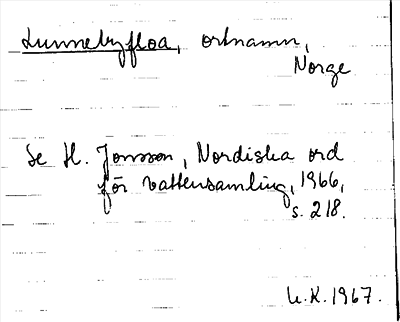 Lunnebyfloa, ortnamn,
Norge
Se H. Jonsson, Nordiska ord
för vattensamling, 1966,
s. 218.
U.K. 1967.